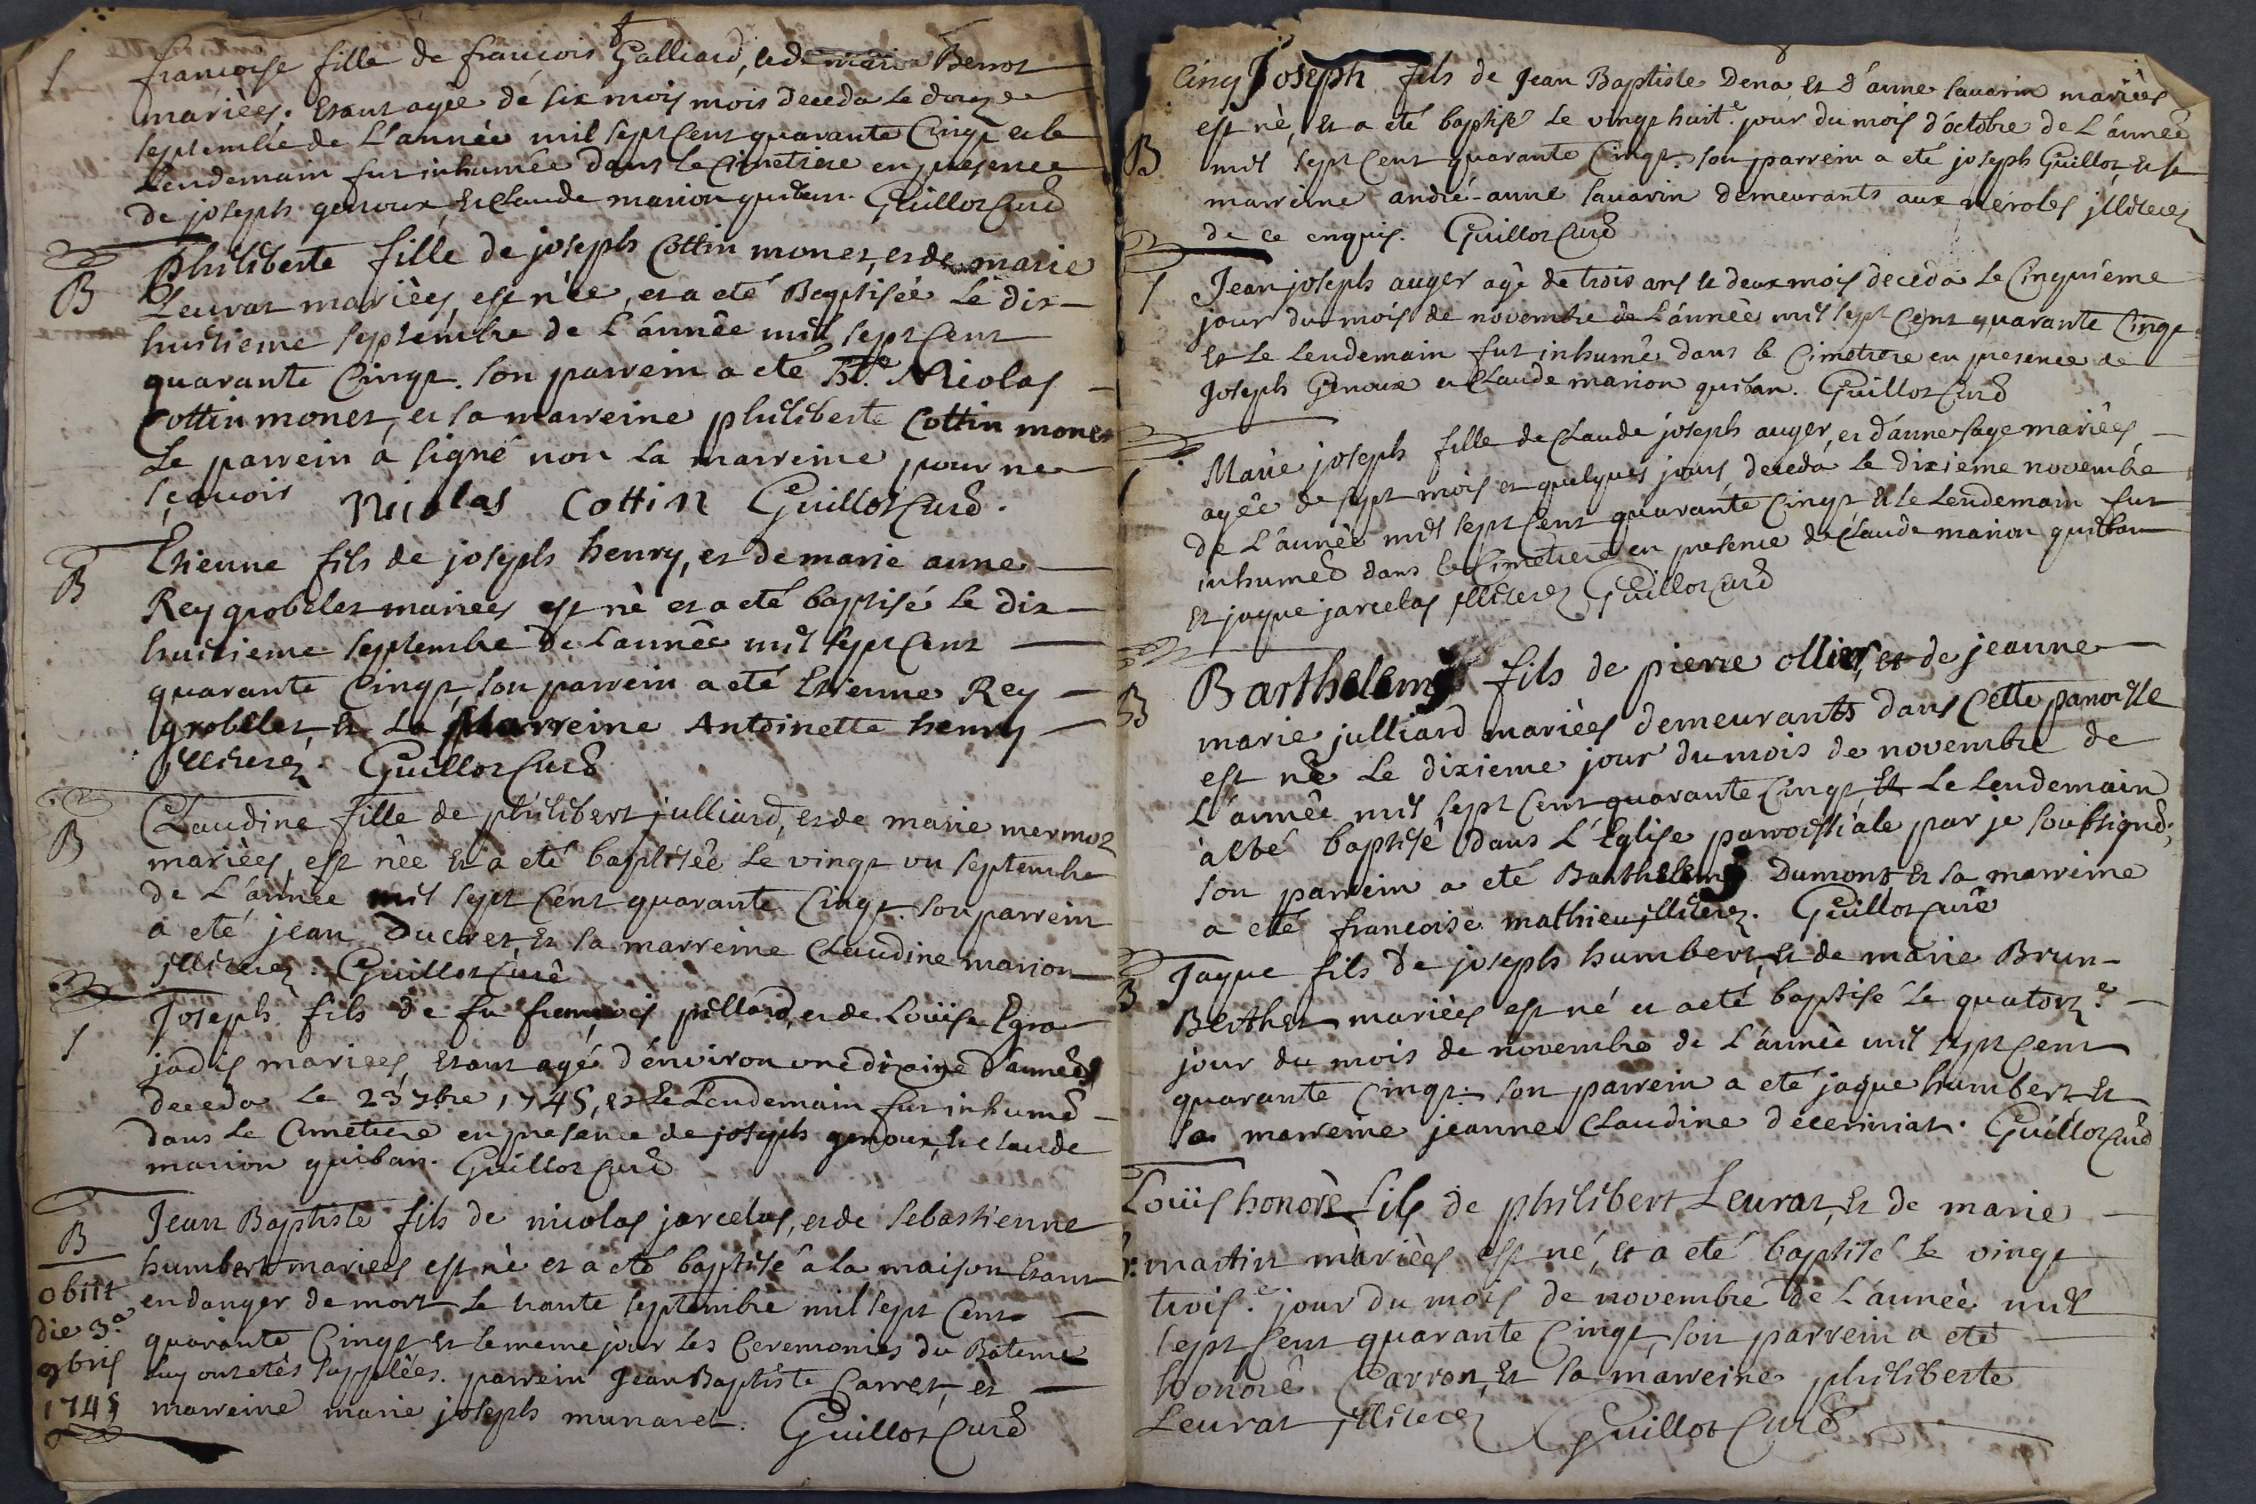 S francoise fille de francois Galliard, et de marie Benoz
marièes. Etant agée de six mois mois deceda Le douze
septembre de L'année mil sept Cent quarante Cinqt et le
Lendemain fut inhumée dans le Cimetiere en presence
de joseph genoux, et Claude marion quiban. Guillot Curé
B Philiberte fille de joseph Cottin monet, et de marie
Leurat mariées, est née, et a eté Baptisée Le dix-
huitieme septembre de L'année mil sept Cent
quarante Cinqt. son parrein a eté Nicolas
Cottin monet, et sa marreine philiberte Cottin monet
Le parrein a signé non La marreine pour ne
sçavoir Nicolas Cottin Guillot Curé.
B Etienne fils de joseph henry, et de marie anne
Rey grobelet mariees est né et a eté baptisé Le dix
huitieme septembre de L'année mil sept Cent
quarante Cinqt, son parrein a eté Etienne Rey
grobelet, et La Marreine Antoinette henry
jlliterez. Guillot Curé
B Claudine fille de philibert julliard, et de marie mermoz
mariées, est née et a eté baptisée Le vingt un septembre
de L'année mil sept Cent quarante Cinqt. son parrein
a eté jean Ducret, et sa marreine Claudine marion
jlliterez. Guillot Curé
S Joseph fils de fu francois pillard, et de Loüise Egra
jadis mariees, etant agé d'environ une dixaine d'années
deceda Le 23 7bre 1745, et Le Lendemain fut inhumé
dans Le Cimetiere en presence de joseph genoux, et claude
marion quiban. Guillot Curé
B Jean Baptiste fils de nicolas jarcelas, et de sebastienne
humbert mariees est né et a eté baptisé à la maison etant
obiit en danger de mort Le trante septembre mil sept Cent
die 3.a quarante Cinqt et le meme jour les Ceremonies du Bateme
9bris luy ont etés supplées. parrein Jean Baptiste Carret, et
1745 marreine marie joseph munaret. Guillot Curé
Cinq Joseph fils de Jean Baptiste Dena et d'anne savarin mariées
est né, et a eté baptisé Le vingt huit.e jour du mois d'octobre de L'année
B mil sept Cent quarante Cinqt. son parrein a eté joseph Guillot et sa
marreine andré-anne savarin demeurants aux néroles jlliterez
de ce enquis. Guillot Curé
S Jean joseph auger agé de trois ans et deux mois deceda Le Cinquieme
jour du mois de novembre de L'année mil sept Cent quarante Cinqt
et Le Lendemain fut inhumé dans le Cimetiere en presence de
Joseph Genoux et Claude marion quiban. Guillot Curé
S Marie joseph fille de Claude joseph auger, et d'anne sage mariées,
agée de sept mois et quelques jours, deceda Le dixieme novembre
de L'année mil sept Cent quarante Cinqt, et Le Lendemain fut
inhumeé dans le Cimetiere en presence de Claude marion quiban
et jaque jarcelas jlliterez Guillot Curé
B Barthelemy fils de pierre ollier, et de jeanne
marie julliard mariées demeurants dans Cette parroisse
est né Le dixieme jour du mois de novembre de
L'année mil sept Cent quarante Cinqt, et Le Lendemain
a eté baptisé dans L'Eglise parroissiale par je soubsigné,
son parrein a eté Barthelemy Dumont, et sa marreine
a eté francoise mathieu jlliterez. Guillot Curé
B Jaque fils de joseph humbert, et de marie Brun-
Berthet mariées est né et a eté baptisé Le quatorz.e
jour du mois de novembre de L'année mil sept Cent
quarante Cinqt. son parrein a eté jaque humbert et
sa marreine jeanne Claudine deceriniat. Guillot Curé
Loüis honoré fils de philibert Leurat, et de marie
martin mariées est né, et a eté baptisé le vingt
trois.e jour du mois de novembre de L'année mil
sept Cent quarante Cinqt, son parrein a eté
honoré Carron, et sa marreine philiberte
Leurat jlliterez Guillot Curé